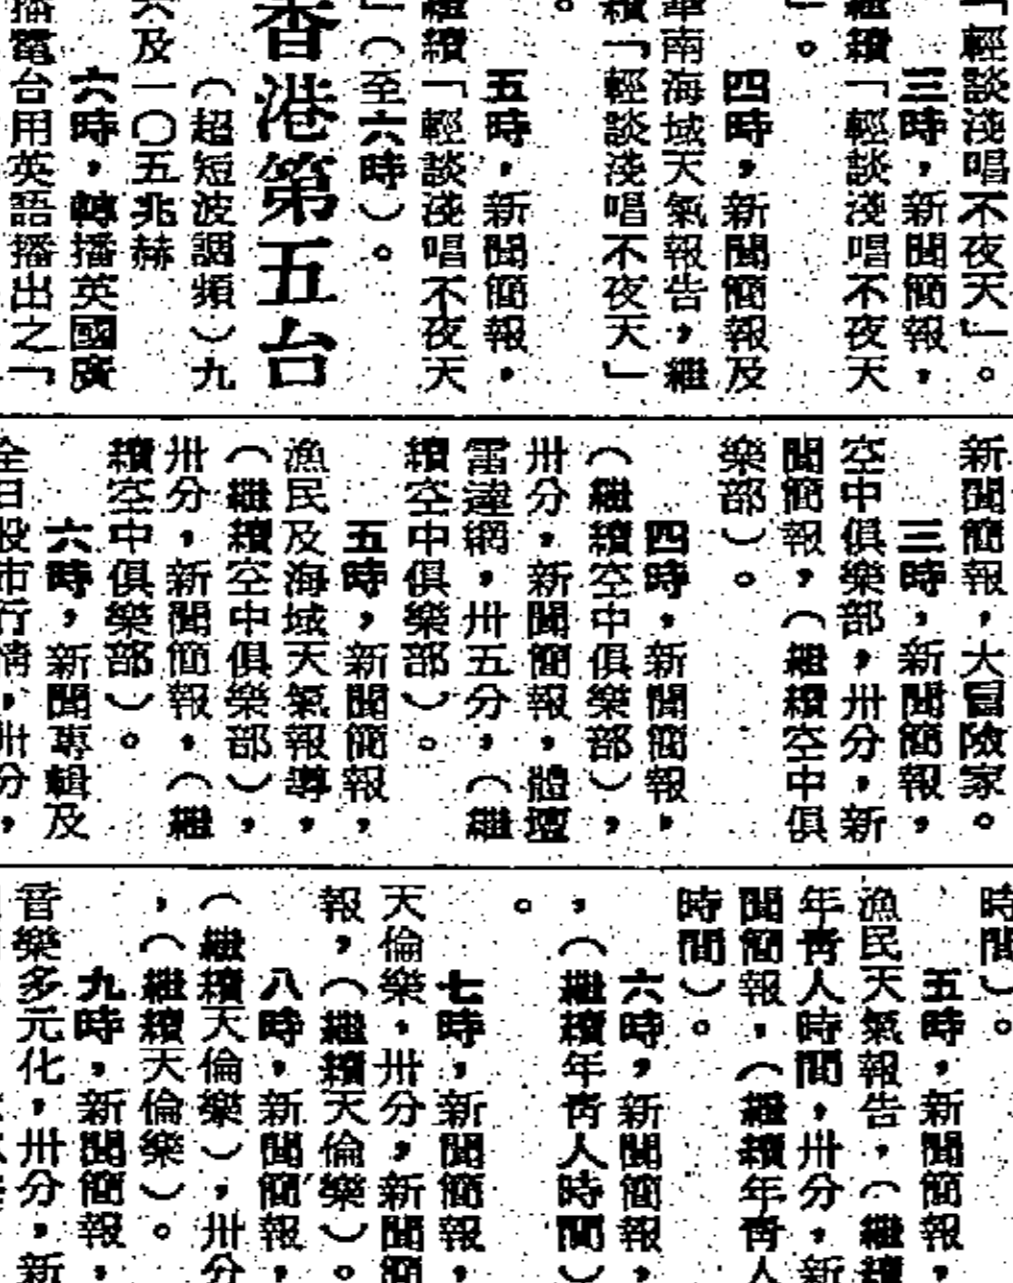 「輕談淺唱不夜天」。
三時，新聞簡報，
繼續「輕談淺唱不夜天
」。
四時，新聞簡報及
華南海域天氣報告，繼
續「輕談淺唱不夜天」
。
五時，新聞簡報，
繼續「輕談淺唱不夜天
」（至六時）。
香港第五台
（超短波調頻）九
六及一〇五兆赫
六時，轉播英國廣
播電台用英語播出之「
新聞簡報，大冒險家。
三時，新聞簡報，
空中俱樂部，卅分，新
聞簡報，（繼續空中俱
樂部）。
四時，新聞簡報，
（繼續空中俱樂部），
卅分，新聞簡報，體壇
雷達網，卅五分，（繼
續空中俱樂部）。
五時，新聞簡報，
漁民及海域天氣報導，
（繼續空中俱樂部），
卅分，新聞簡報，（繼
續空中俱樂部）。
六時，新聞專輯及
全日股市行情，卅分，
時間）。
五時，新聞簡報，
漁民天氣報告，（繼續
年青人時間，卅分，新
聞簡報，（繼續年青人
時間）。
六時，新聞簡報，
，（繼續年青人時間）
。
七時，新聞簡報，
天倫樂，卅分，新聞簡
報，（繼續天倫樂）。
八時，新聞簡報，
（繼續天倫樂），卅分
，（繼續天倫樂）。
九時，新聞簡報，
音樂多元化，卅分，新